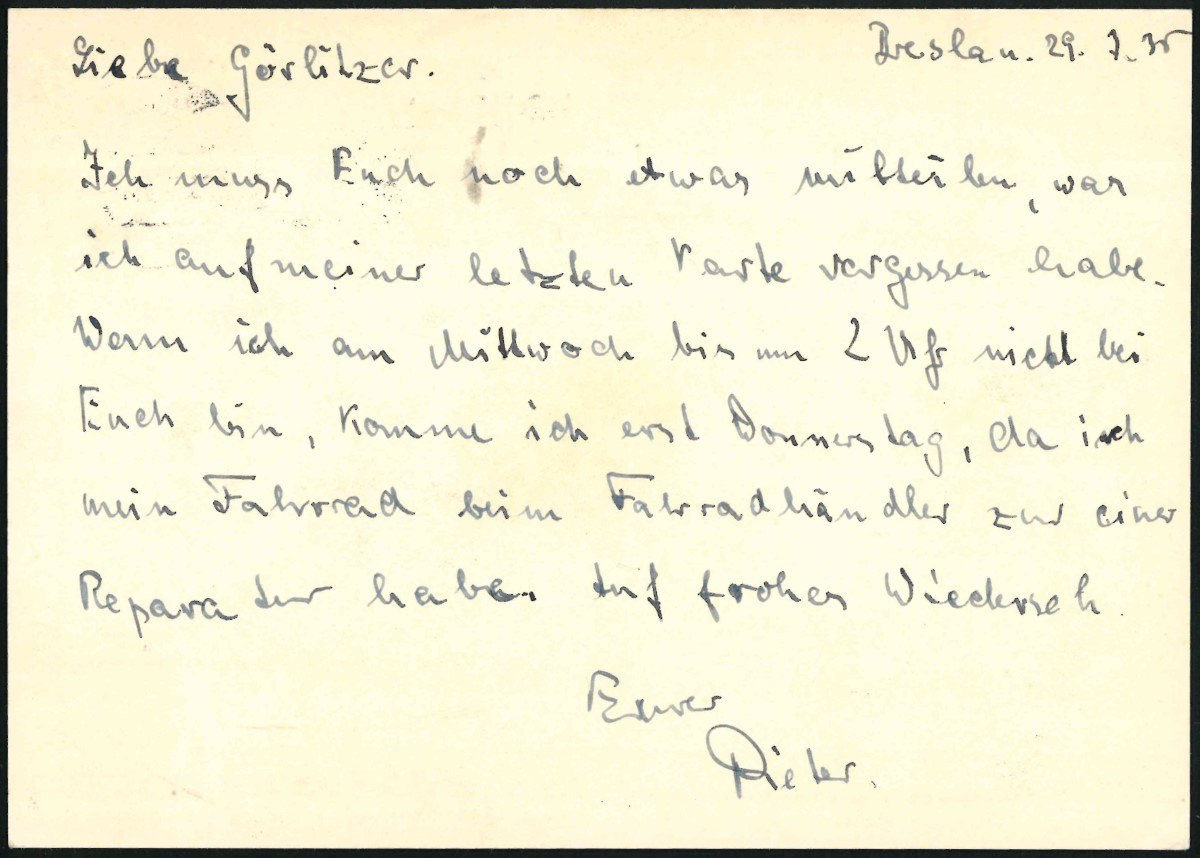 Breslau. 29. 7. 35
Liebe Görlitzer.
Ich muss Euch noch etwas mitteilen, was
ich auf meiner letzten Karte vergessen habe.
Wenn ich am Mittwoch bis um 2 Uhr nicht bei
Euch bin, komme ich erst Donnerstag, da ich
mein Fahrrad beim Fahrradhändler zur einer
Reparatur habe. Auf frohes Wiederseh
Euer
Dieter.